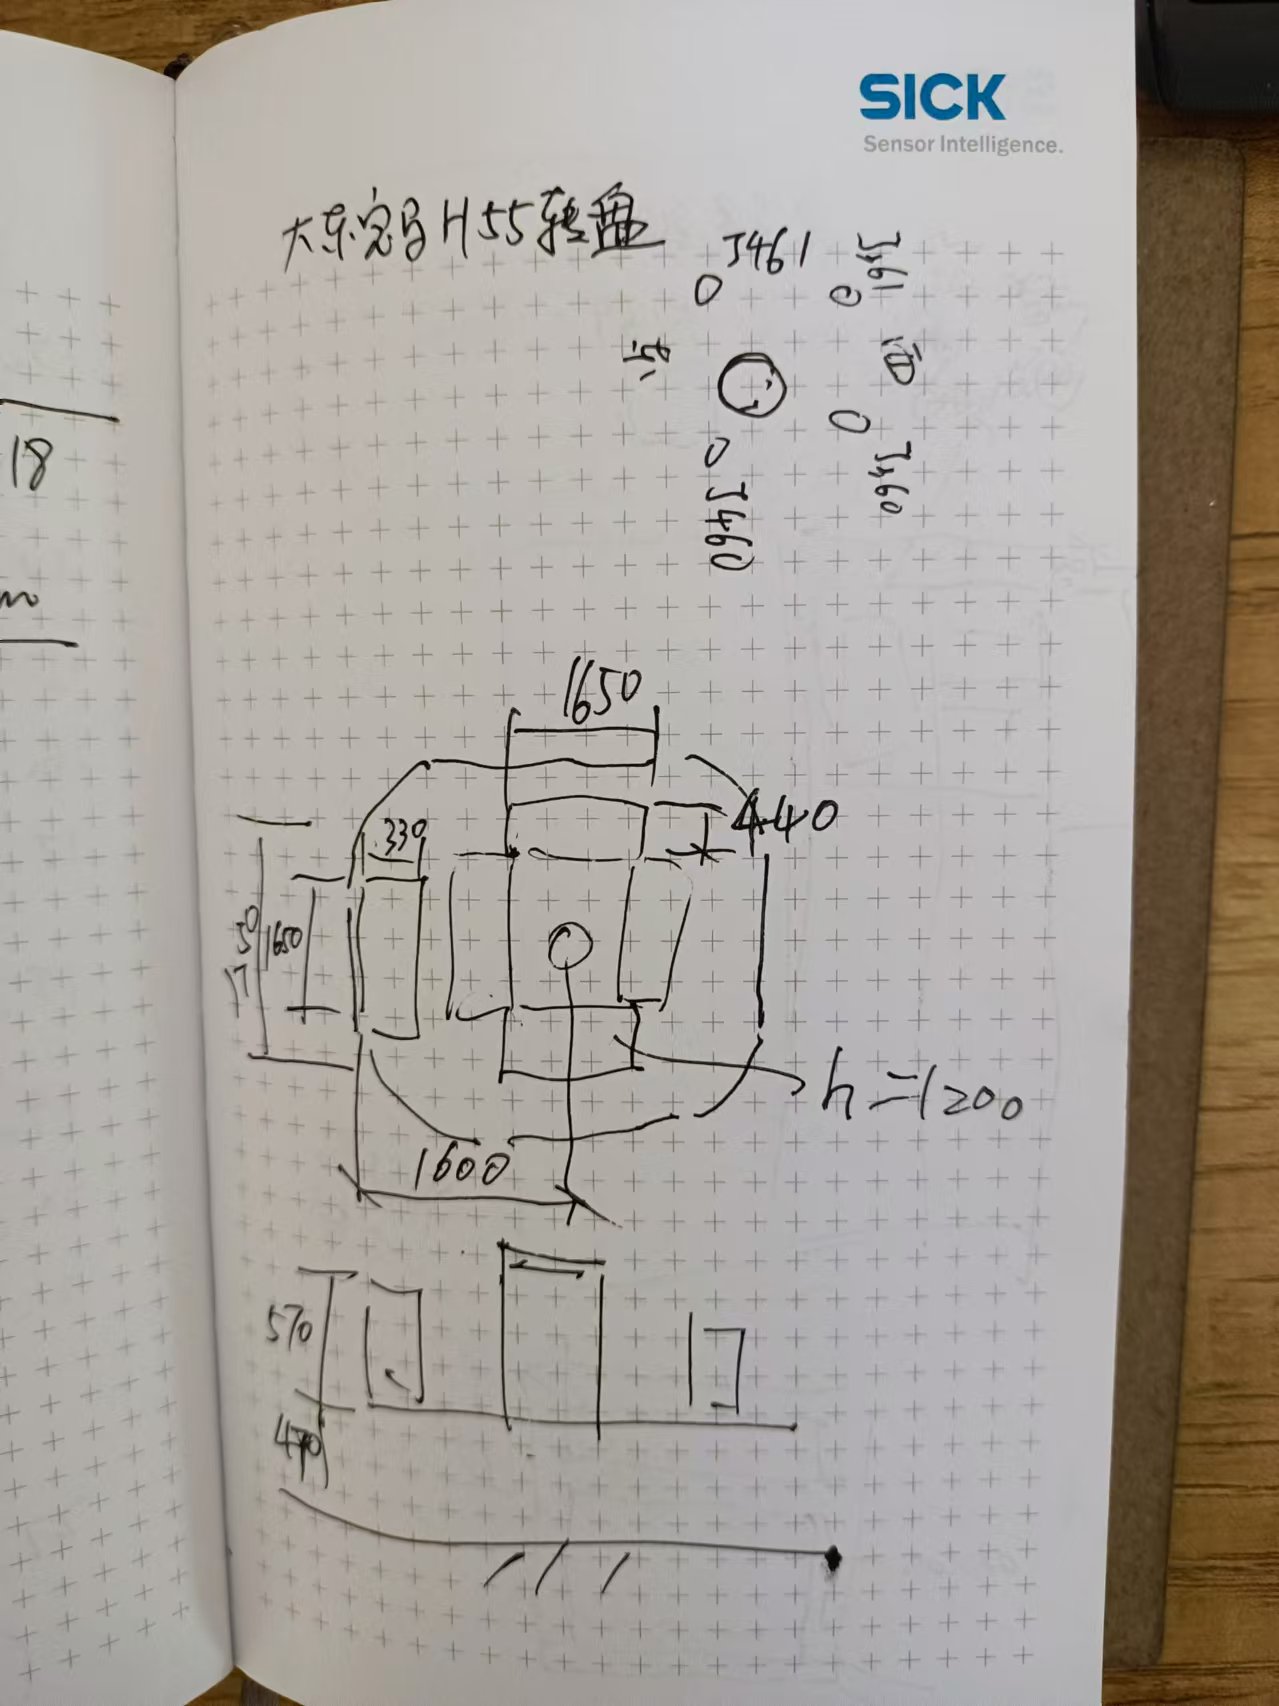 SICK
Sensor Intelligence.
大东宝马H55转盘
J461
J461
东
西
J460
J460
18
1650
440
330
1750
1650
h=1200
1600
570
470